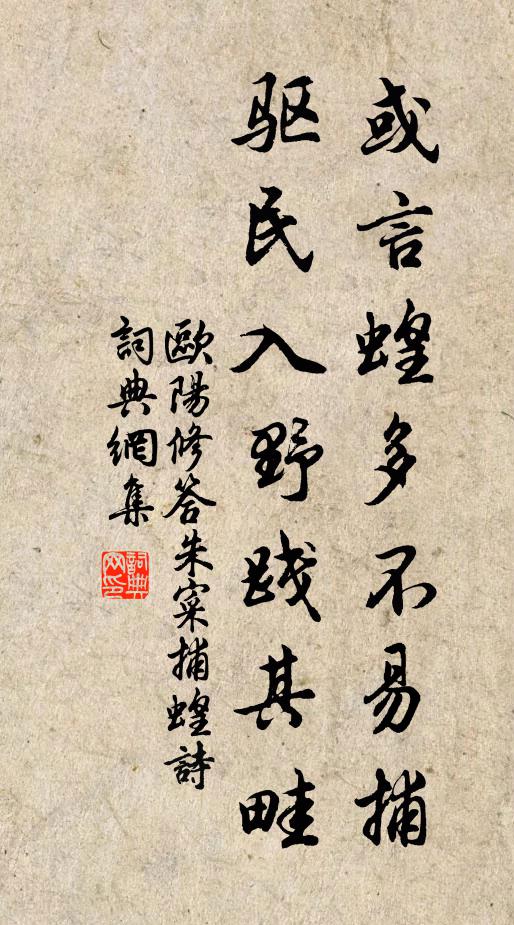 或言蝗多不易捕
驱民入野践其畦
歐陽修答朱寀捕蝗詩
詞典網集
詞典网印